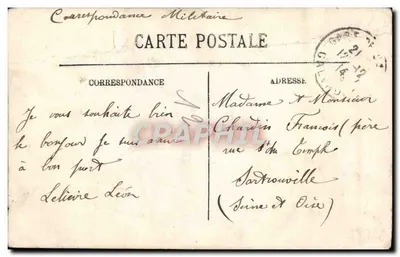 Correspondance Militaire
CARTE POSTALE
CORRESPONDANCE
Je vous souhaite bien
le bonjour je suis arrivé
à bon port
Lelievre Léon
ADRESSE
Madame & Monsieur
Chardin François (père
rue du Temple
Sartrouville
(Seine et Oise)
GARE DE
21
12
14
CAEN